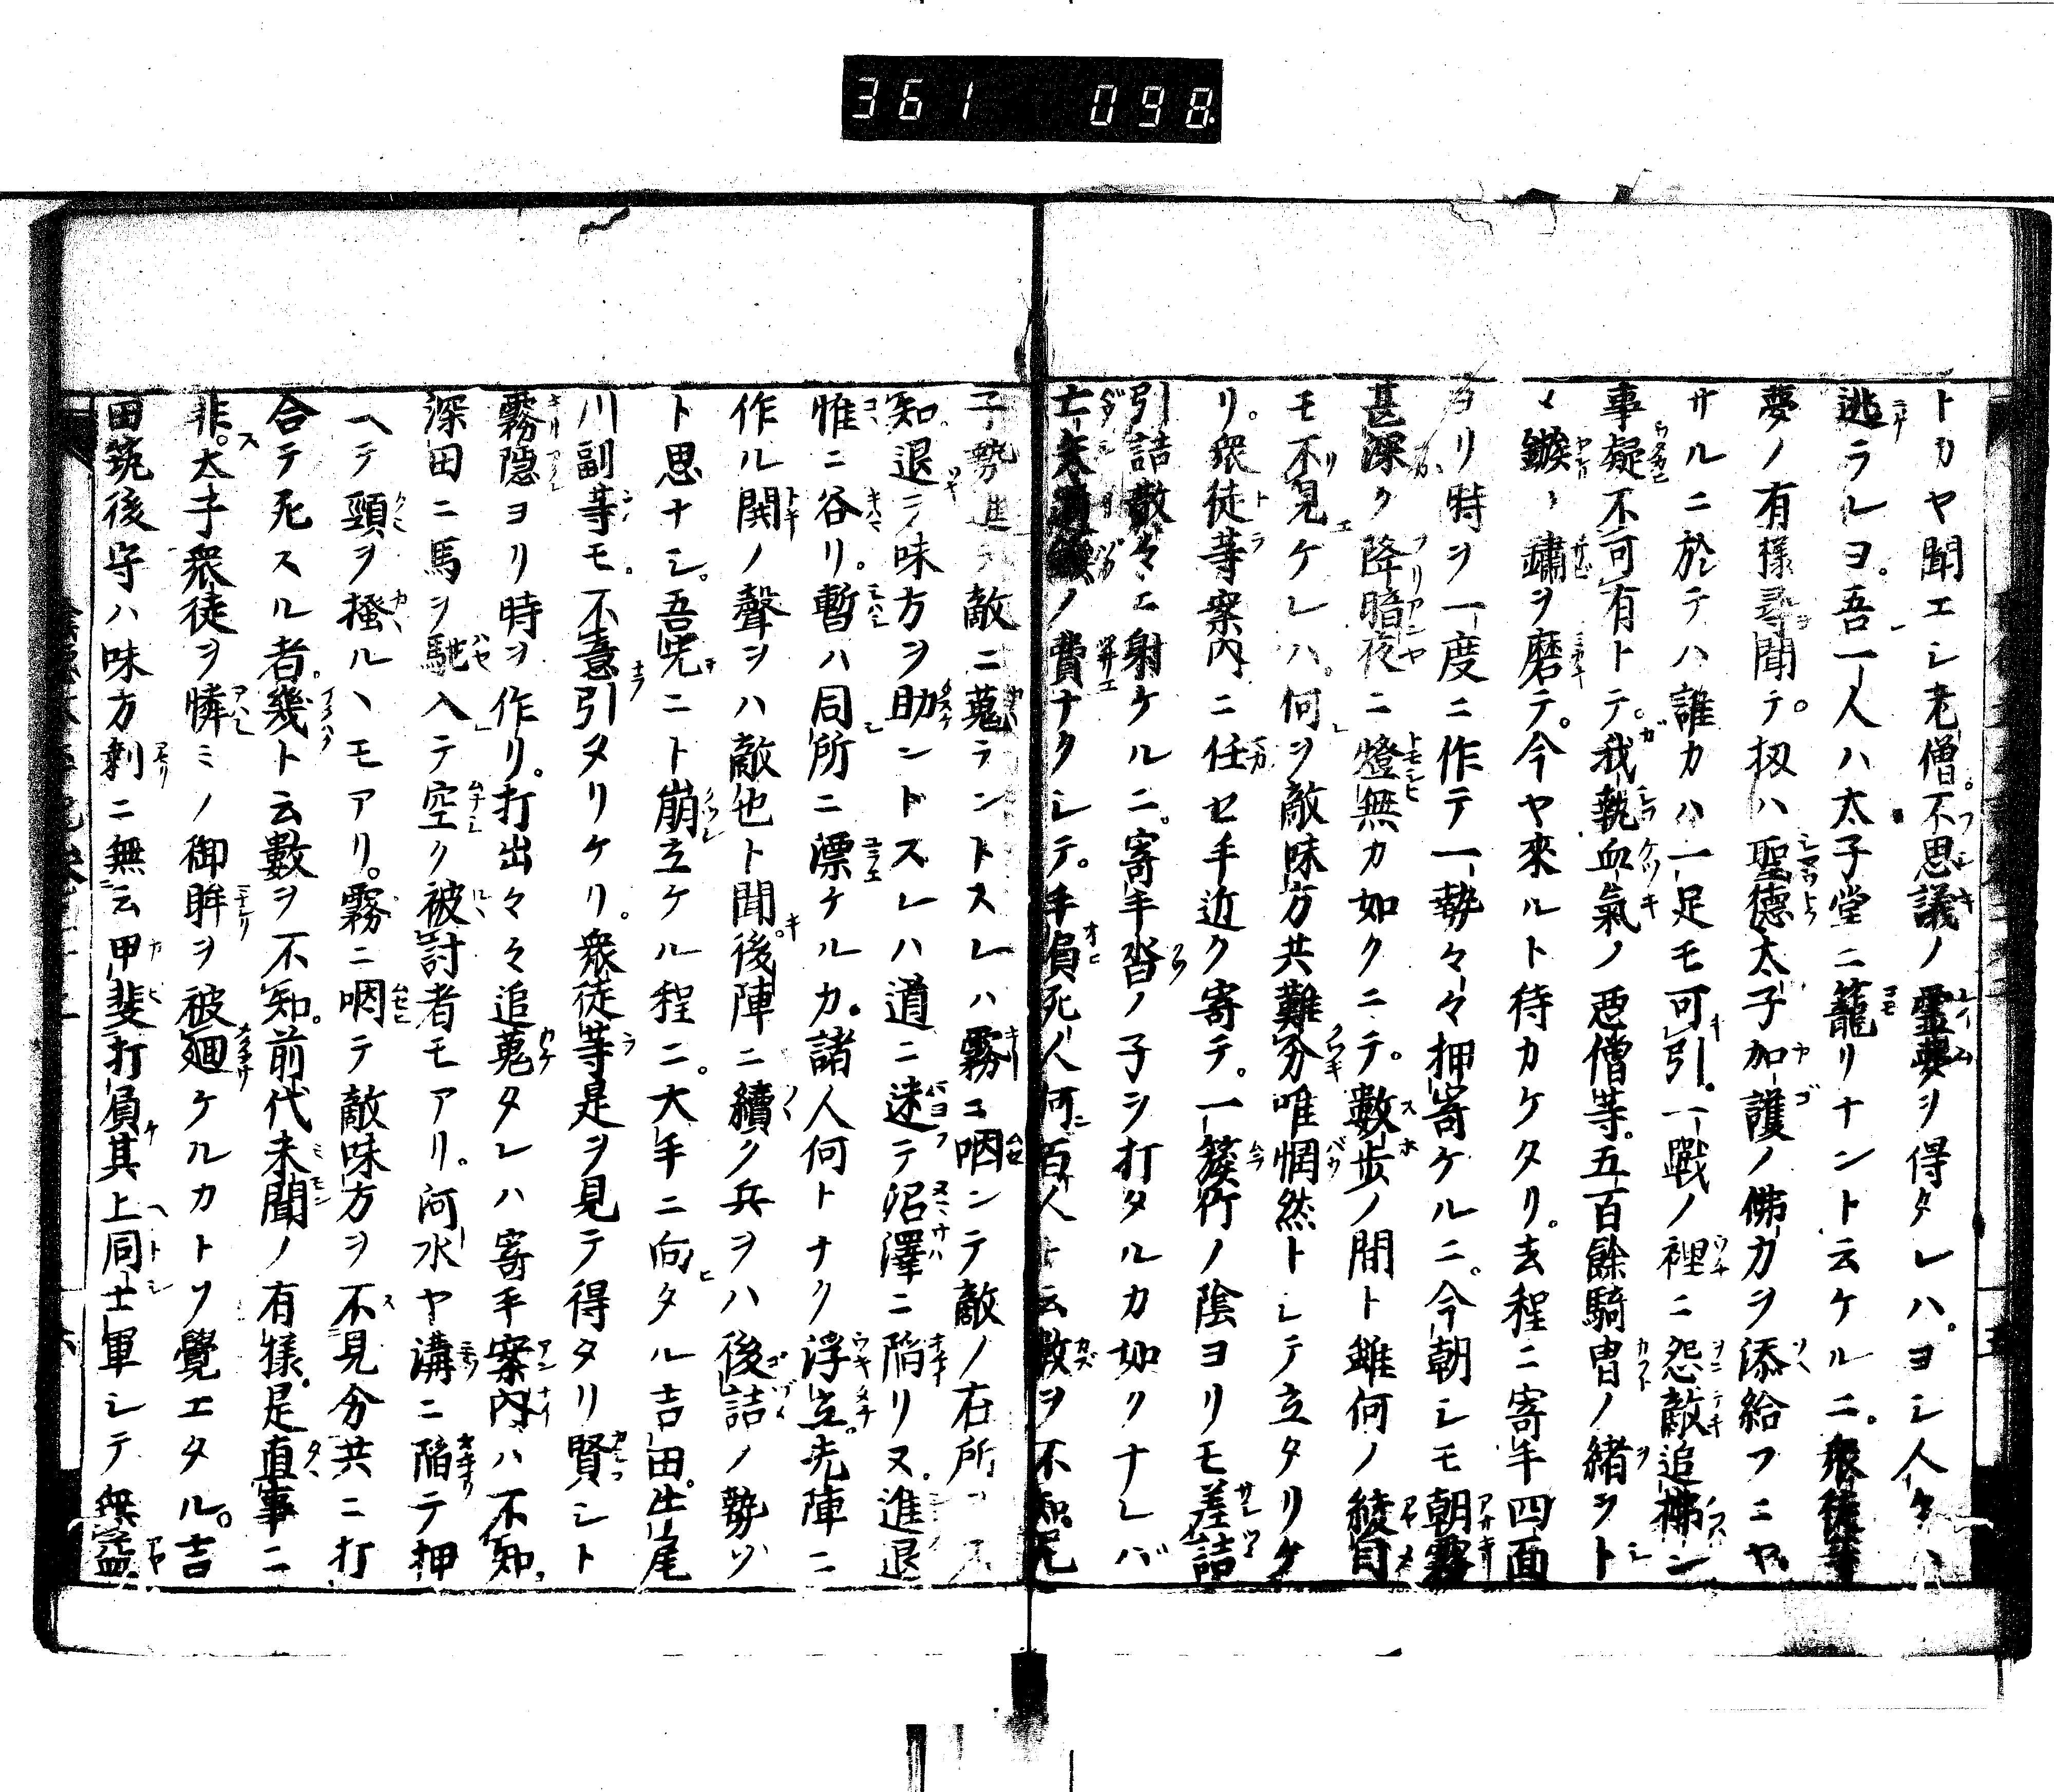 361 098
トカヤ聞エシ老僧。不思議ノ霊夢ヲ得タレハ。ヨシ人々ハ
逃ラレヨ。吾一人ハ太子堂ニ籠リナント云ケルニ。衆徒等
夢ノ有様尋聞テ。扨ハ聖徳太子加護ノ佛力ヲ添給フニヤ
サルニ於テハ誰カハ一足モ可引。一戰ノ裡ニ怨敵追拂ン
事疑不可有トテ。我執血氣ノ悪僧等。五百餘騎冑ノ緒ヲト
メ鏃ヽ鏽ヲ磨テ。今ヤ來ルト待カケタリ。去程ニ寄手四面
ヨリ時ヲ一度ニ作テ一勢々々押寄ケルニ。今朝シモ朝霧
甚深ク降暗夜ニ燈無カ如クニテ。數歩ノ間ト雖何ノ綾目
モ不見ケレハ。何ヲ敵味方共難分唯惘然トシテ立タリケ
リ。衆徒等案内ニ任セ手近ク寄テ。一簇竹ノ陰ヨリモ差詰
引詰散々ニ射ケルニ。寄手沓ノ子ヲ打タルカ如クナレバ
ノ費ナクシテ。手負死人何百人ト云數ヲ不知。
子勢進テ敵ニ蒐ラントスレハ霧ニ咽ンテ敵ノ在所ヲ不
知退テ味方ヲ助ントスレハ道ニ迷テ沼澤ニ陥リヌ。進退
惟ニ谷リ。暫ハ同所ニ漂ケルカ。諸人何トナク浮立。先陣ニ
作ル鬨ノ聲ヲハ敵也ト聞後陣ニ續ク兵ヲハ後詰ノ勢ソ
ト思ナシ。吾先ニト崩立ケル程ニ。大手ニ向タル吉田。牛尾
川副等モ。不意引タリケリ。衆徒等是ヲ見テ得タリ賢シト
霧隠ヨリ時ヲ作リ。打出々々追蒐タレハ寄手案内ハ不知。
深田ニ馬ヲ馳入テ空ク被討者モアリ。河水ヤ溝ニ陥テ押
ヘテ頸ヲ掻ルヽモアリ。霧ニ咽テ敵味方ヲ不見分共ニ打
合テ死スル者。幾ト云數ヲ不知。前代未聞ノ有様。是直事ニ
非。太子衆徒ヲ憐ミノ御眸ヲ被廻ケルカトソ覺エタル。吉
田筑後守ハ味方剰ニ無云甲斐打負其上同士軍シテ無益